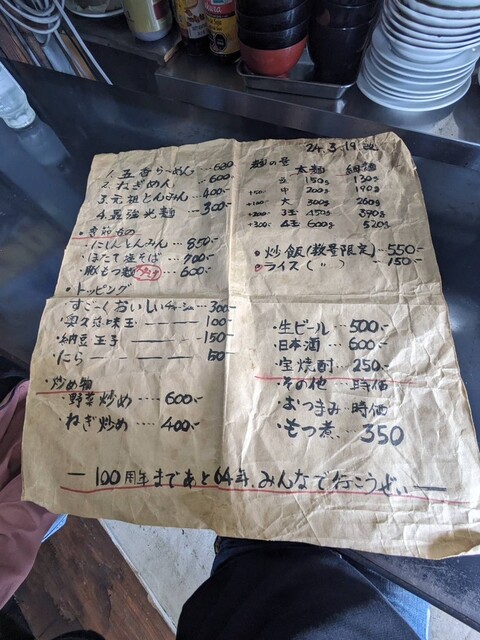 1. 五香らーめん… 600
2. ねぎめん 600-
3. 元祖とんみん… 400-
4. 最強光麺 … 300-
・季節もの
・にしんとんみん … 850-
・ほたて塩そば … 700-
・豚もつ麺 … 600-
・トッピング
すご～くおいしいチャーシュー… 300-
・奥久慈味玉 ――― 100-
・納豆玉子 ――― 150-
・にら ― ― ― 150
・炒め物
・野菜炒め …… 600-
・ねぎ炒め …… 400-
24.3.19
麺の量 太麺 細麺
並 150g 130g
+50- 中 200g 190g
+100- 大 300g 260g
+200- 3玉 450g 390g
+300- 4玉 600g 520g
・炒飯(数量限定) … 550-
・ライス( 〃 ) ―― 150-
・生ビール … 500-
・日本酒 … 600-
・宝焼酎 … 250-
・その他 … 時価
・おつまみ … 時価
・もつ煮、 350
― 100周年まであと64年、みんなで行こうぜぃ ―